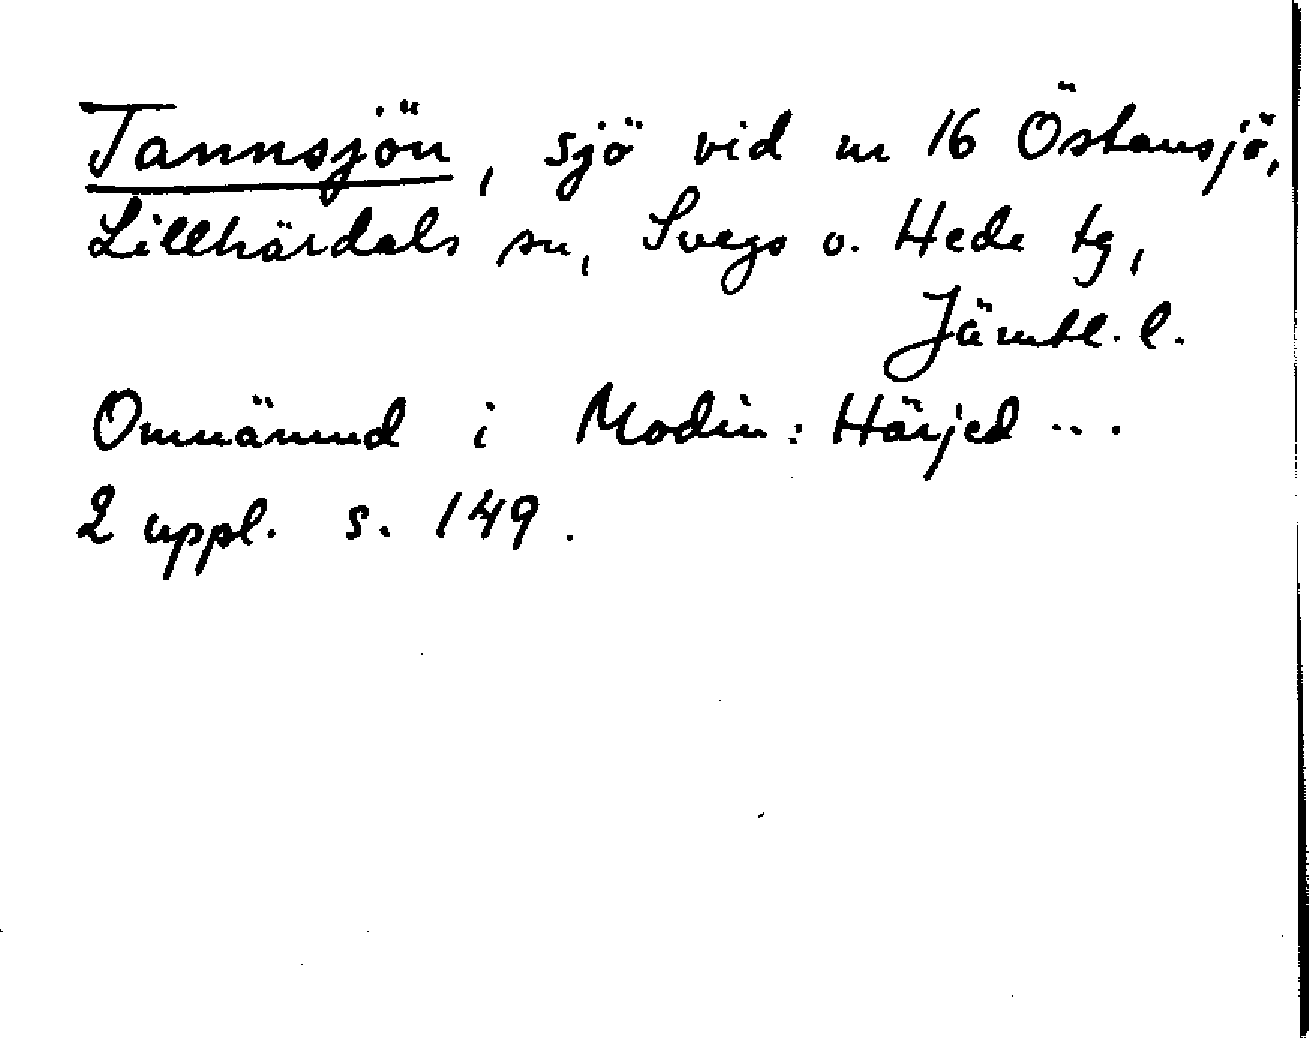 Tannsjön, sjö vid nr 16 Östansjö,
Lillhärdals sn, Svegs o. Hede tg,
Jämtl. l.
Omnämnd i Modin: Härjed ...
2 uppl. s. 149.